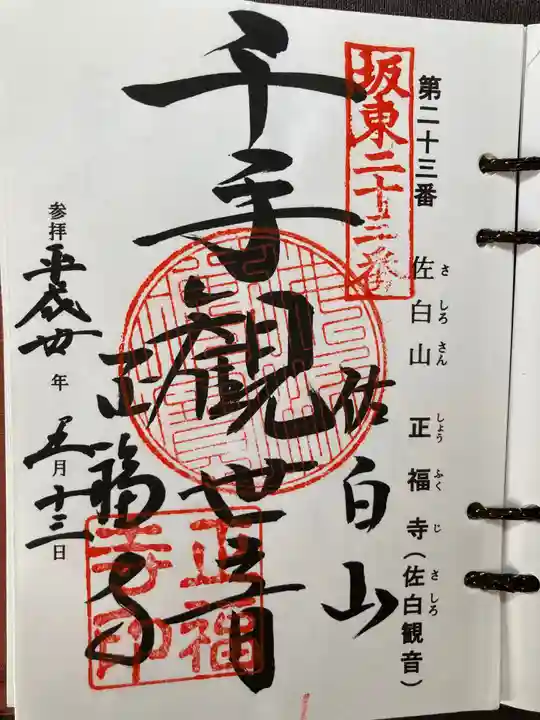 第二十三番 佐白山 正福寺(佐白観音)
さ しろ さん しょう ふく じ さ しろ
坂東二十三番
佐白山
千手観世音
正福寺
正福
寺印
参拝 平成廿年 五月十三日